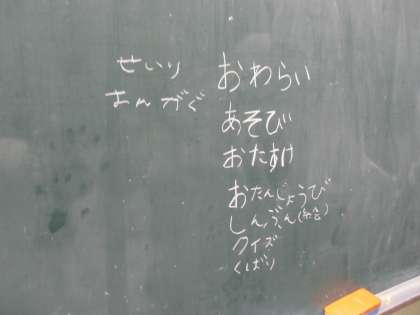 せいり
おんがく
おわらい
あそび
おたすけ
おたんじょうび
しんぶん(総合)
クイズ
くばり